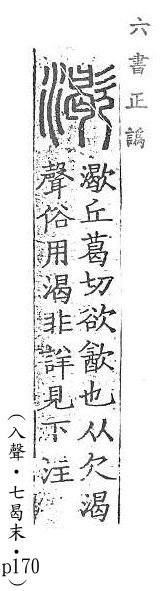 六書正譌
㵣丘葛切欲㱃也从欠渴
聲俗用渴非詳見下注
（入聲・七曷末・
p170）